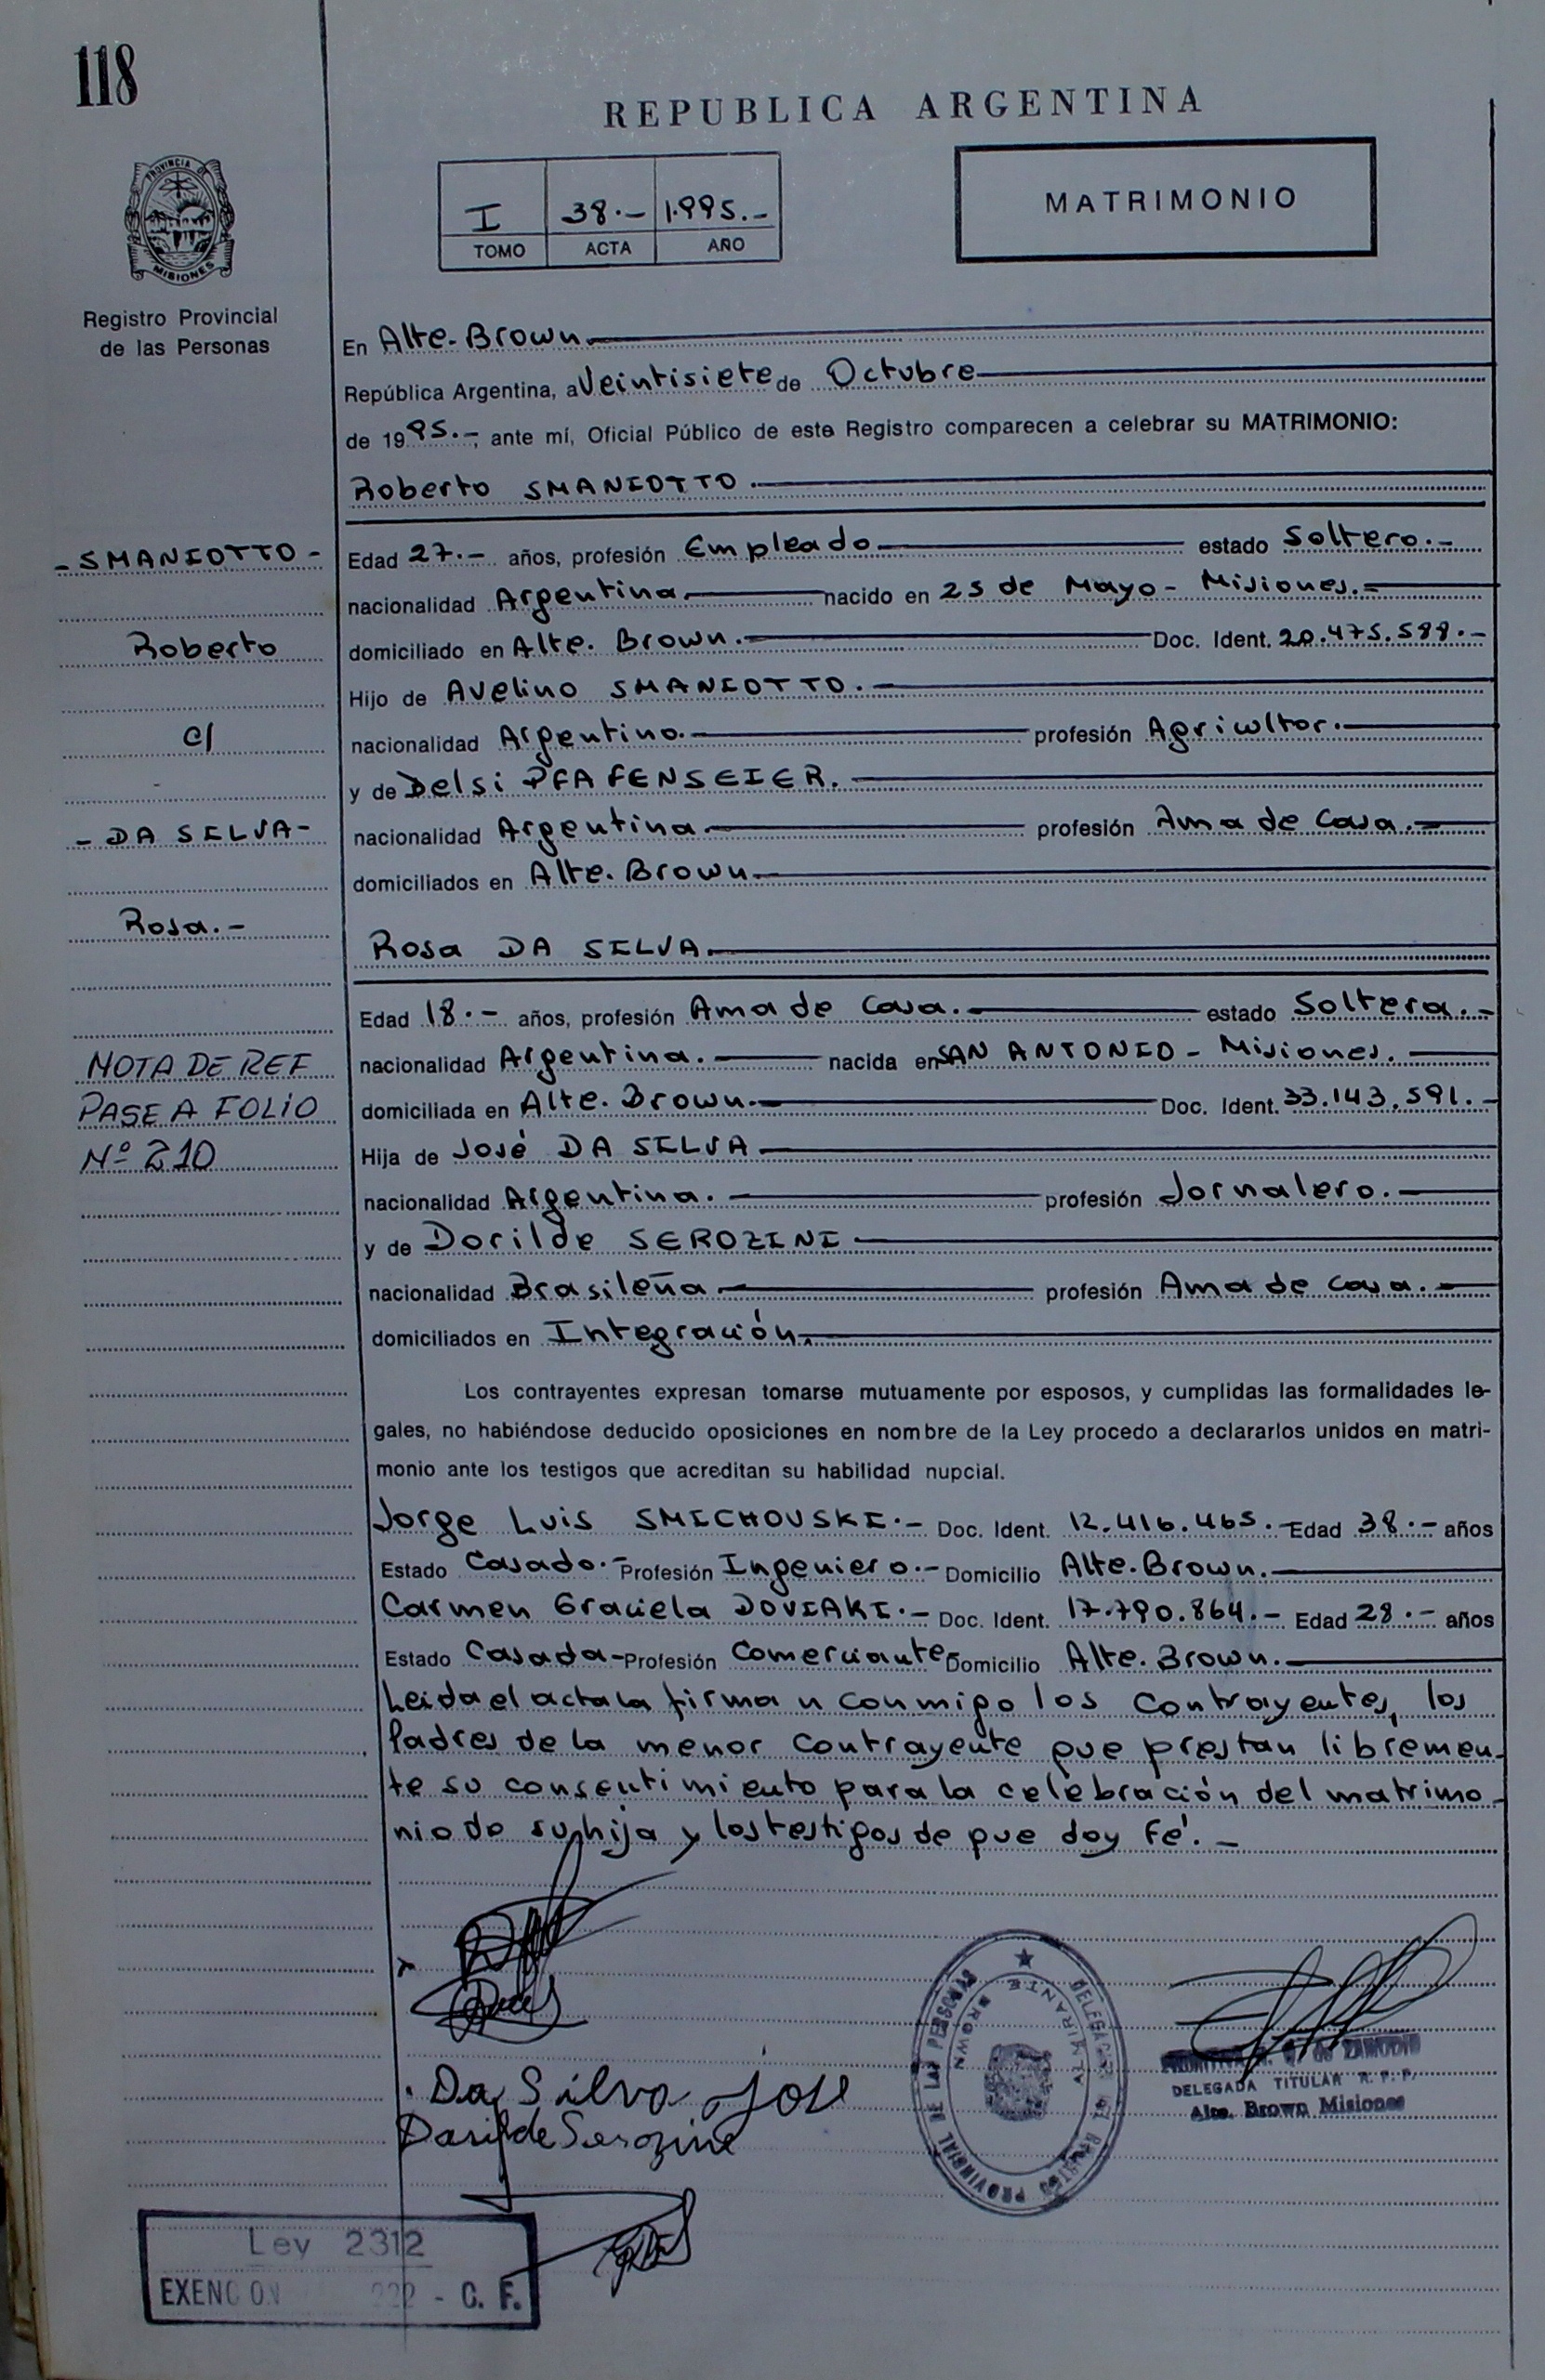 118
REPUBLICA ARGENTINA
PROVINCIA DE
MISIONES
Registro Provincial
de las Personas
I 38.- 1.995.-
TOMO ACTA AÑO
MATRIMONIO
En Alte. Brown
República Argentina, a Veintisiete de Octubre
de 1995.-, ante mí, Oficial Público de este Registro comparecen a celebrar su MATRIMONIO:
Roberto SMANIOTTO
- SMANIOTTO -
Roberto
c/
- DA SILVA -
Rosa.-
Edad 27.- años, profesión Empleado estado Soltero.-
nacionalidad Argentina nacido en 25 de Mayo - Misiones.=
domiciliado en Alte. Brown. Doc. Ident. 20.475.599.-
Hijo de Avelino SMANIOTTO.
nacionalidad Argentino. profesión Agricultor.
y de Delsi PFAFENSEIER.
nacionalidad Argentina profesión Ama de Casa.
domiciliados en Alte. Brown
Rosa DA SILVA
Edad 18.- años, profesión Ama de Casa. estado Soltera.-
nacionalidad Argentina. nacida en SAN ANTONIO - Misiones.
domiciliada en Alte. Brown Doc. Ident. 33.143.591.-
Hija de José DA SILVA
nacionalidad Argentina. profesión Jornalero.
y de Dorilde SEROZINI
nacionalidad Brasileña profesión Ama de Casa.
domiciliados en Integración
NOTA DE REF
PASE A FOLIO
Nº 210
Los contrayentes expresan tomarse mutuamente por esposos, y cumplidas las formalidades le-
gales, no habiéndose deducido oposiciones en nombre de la Ley procedo a declararlos unidos en matri-
monio ante los testigos que acreditan su habilidad nupcial.
Jorge Luis SMICHOUSKI.- Doc. Ident. 12.416.465.- Edad 38.- años
Estado Casado.- Profesión Ingeniero.- Domicilio Alte. Brown.
Carmen Graciela DOVIAKI.- Doc. Ident. 17.790.864.- Edad 28.- años
Estado Casada- Profesión Comerciante Domicilio Alte. Brown.
Leida el acta la firman conmigo los contrayentes, los
Padres de la menor contrayente que prestan libremen-
te su consentimiento para la celebración del matrimo-
nio de su hija y los testigos de que doy Fé.-
Da Silva Jose
Darilde Serozine
DELEGACION DEL REGISTRO PROVINCIAL DE LAS PERSONAS
ALMIRANTE BROWN
DE ZAMUDIO
DELEGADA TITULAR R. P. P.
Alte. Brown Misiones
Ley 2312
EXENC ON - C. F.